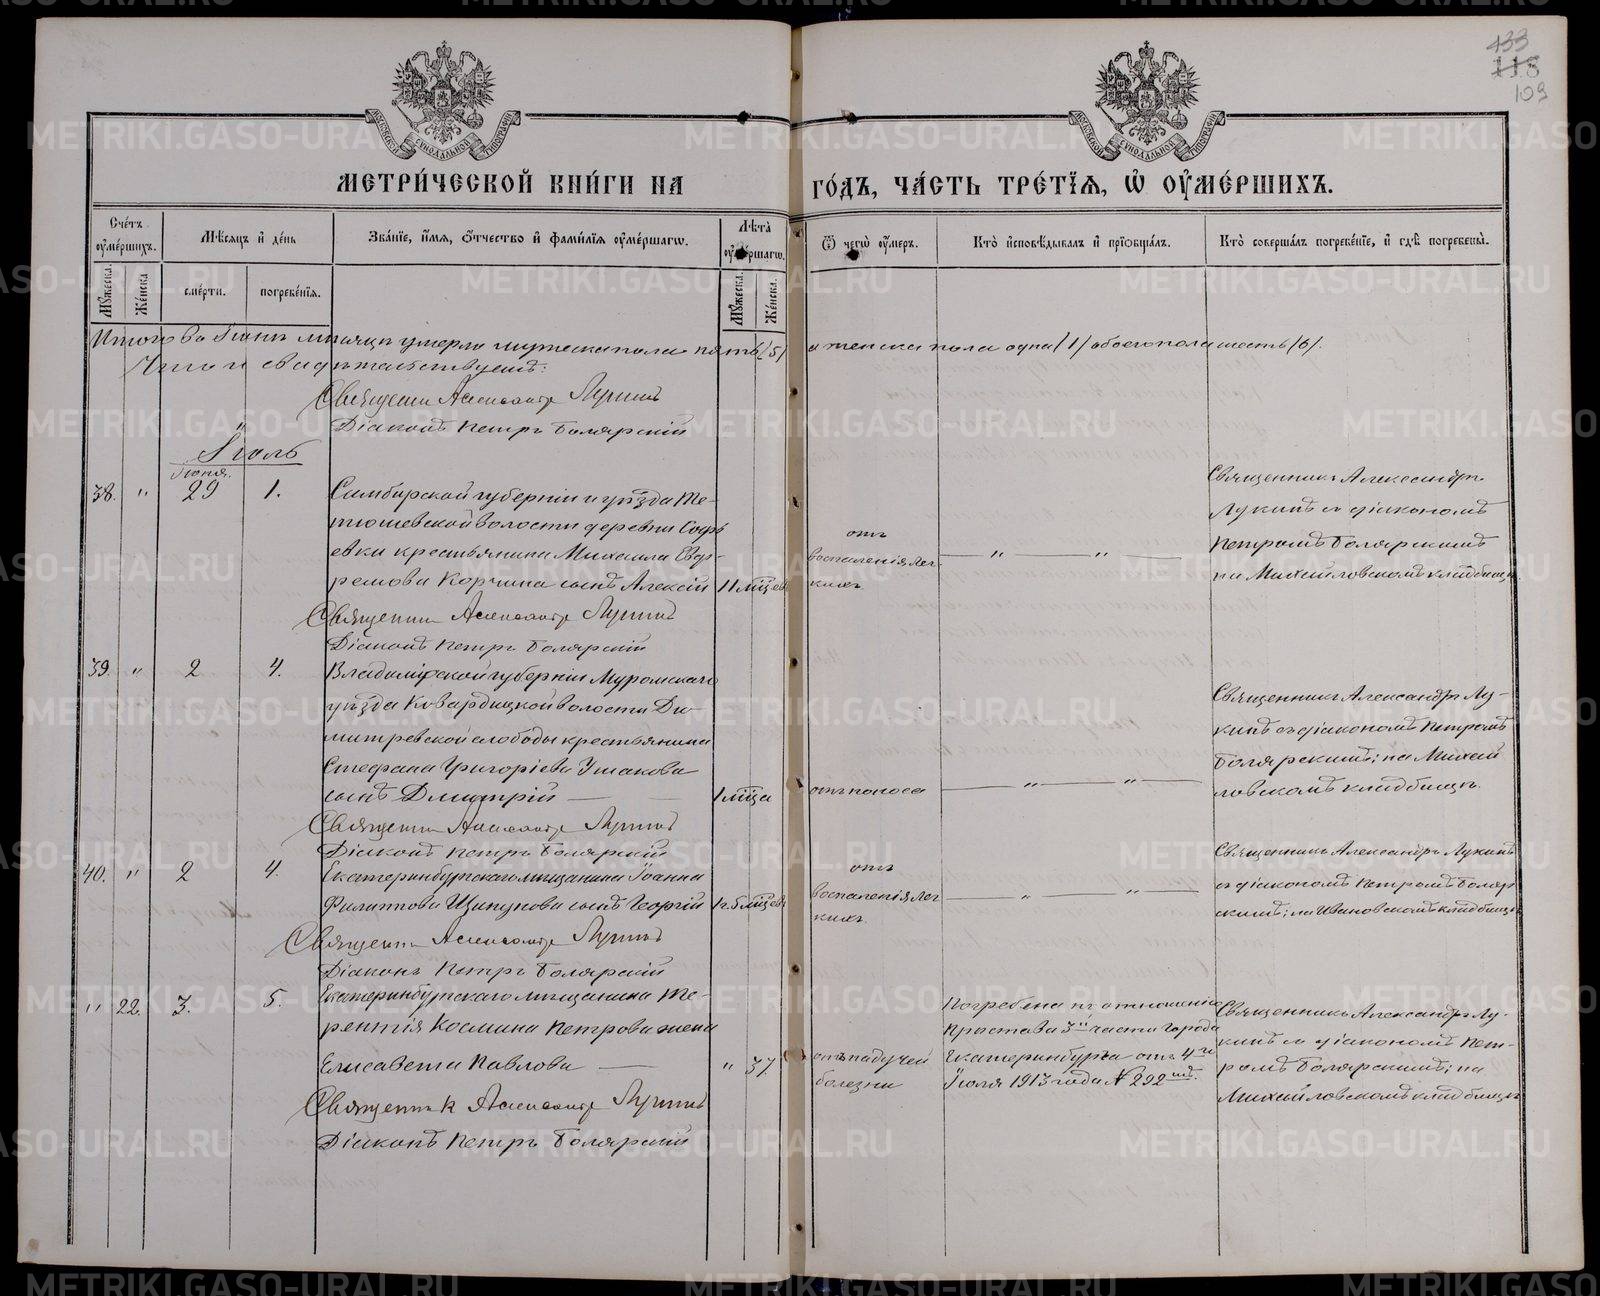 433
118
109
МЕТРИ́ЧЕСКОЙ КНИ́ГИ НА
ГО́ДЪ, ЧА́СТЬ ТРЕ́ТЇѦ, Ѡ҆ ОУ҆МЕ́РШИХЪ.
Сче́тъ оу҆ме́ршихъ.
Мѣ́сяцъ и҆ де́нь
Зва́нїе, и҆́мѧ, ѻ҆́тчество и҆ фами́лїѧ оу҆ме́ршагѡ.
Лѣ́та оу҆ме́ршагѡ.
Ѿ чегѡ̀ оу҆́меръ.
Кто̀ и҆сповѣ́дывалъ и҆ прїѡбща́лъ.
Кто̀ соверша́лъ погребе́нїе, и҆ гдѣ̀ погребены̀.
Мꙋ́жеска.
Же́нска
сме́рти.
погребе́нїѧ.
Мꙋ́жеска.
Же́нска.
Итого въ Іюнѣ мѣсяцѣ умерло мужеска пола пять /5/ а женска пола одна /1/ обоего пола шесть /6/.
свидѣтельствуемъ:
Священникъ Александръ Лукинъ
Діаконъ Петръ Болярскій
Іюль
Іюня.
38. " 29 1. Симбирской губерніи и уѣзда Те-
тюшевской волости деревни Софь
евки крестьянина Михаила Евф-
ремова Корчина сынъ Алексій 11 мѣсцевъ
отъ
воспаленія лег
кихъ
Священникъ Александръ
Лукинъ съ діакономъ
Петромъ Болярскимъ
на Михайловскомъ кладбищѣ
Священникъ Александръ Лукинъ
Діаконъ Петръ Болярскій
39. " 2 4. Владимірской губерніи Муромскаго
уѣзда Ковардицкой волости Ди-
митревской слободы крестьянина
Стефана Григоріева Ушакова
сынъ Дмитрій 1 мѣсца
отъ поноса
Священникъ Александръ Лу-
кинъ съ діакономъ Петромъ
Болярскимъ; на Михай
ловскомъ кладбищѣ.
Священникъ Александръ Лукинъ
Діаконъ Петръ Болярскій
40. " 2 4. Екатеринбургскаго мѣщанина Іоанна
Филиппова Щипунова сынъ Георгій
отъ
воспаленія лег
кихъ
Священникъ Александръ Лукинъ
съ діакономъ Петромъ Боляр
скимъ; на Ивановскомъ кладбищѣ
Священникъ Александръ Лукинъ
Діаконъ Петръ Болярскій
" 22. 3. 5. Екатеринбургскаго мѣщанина Те-
рентія Космина Петрова жена
Елисавета Павлова " 37
отъ падучей
болезни
Погребена по отношенію
Пристава 3й части города
Екатеринбурга отъ 4го
Іюля 1913 года № 292
Священникъ Александръ Лу-
кинъ съ діакономъ Пет-
ромъ Болярскимъ; на
Михайловскомъ кладбищѣ
Священникъ Александръ Лукинъ
Діаконъ Петръ Болярскій
METRIKI.GASO-URAL.RU